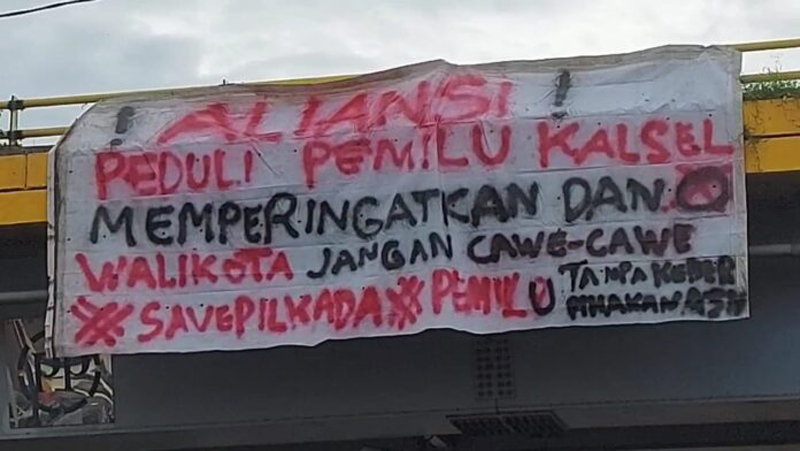 ! ALIANSI !
PEDULI PEMILU KALSEL
MEMPERINGATKAN DAN
WALIKOTA JANGAN CAWE-CAWE
#SAVEPILKADA # PEMILU
TANPA